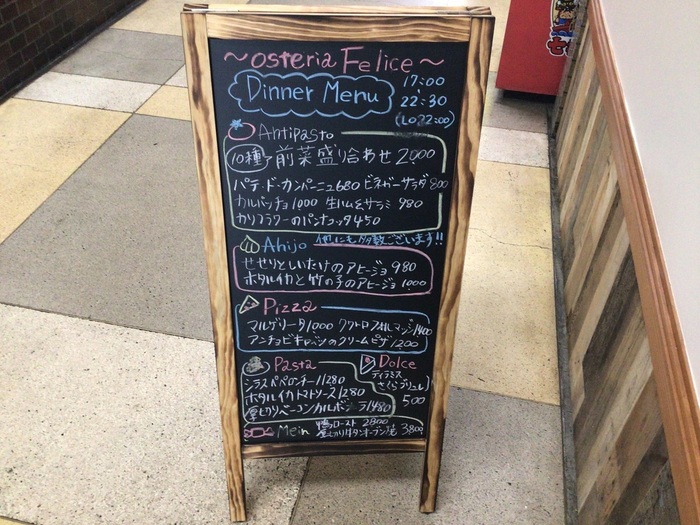 ～osteria Felice～
Dinner Menu
17:00
22:30
(Lo22:00)
Antipasto
10種 前菜盛り合わせ 2000
パテ・ド・カンパーニュ680 ビネガーサラダ 800
カルパッチョ1000 生ハム&サラミ 980
カリフラワーのパンナコッタ450
Ahijo 他にも多数ございます!!
せせりとしいたけのアヒージョ 980
ホタルイカと竹の子のアヒージョ 1000
Pizza
マルゲリータ1000 クワトロフォルマッジ1400
アンチョビキャベツのクリームピザ1200
Pasta
シラスペペロンチーノ1280
ホタルイカトマトソース1280
厚切りベーコンカルボ ラ1480
Dolce
ティラミス
さくらブリュレ
500
Mein 鴨ロースト 2800
厚切り牛タンオーブン焼 3800